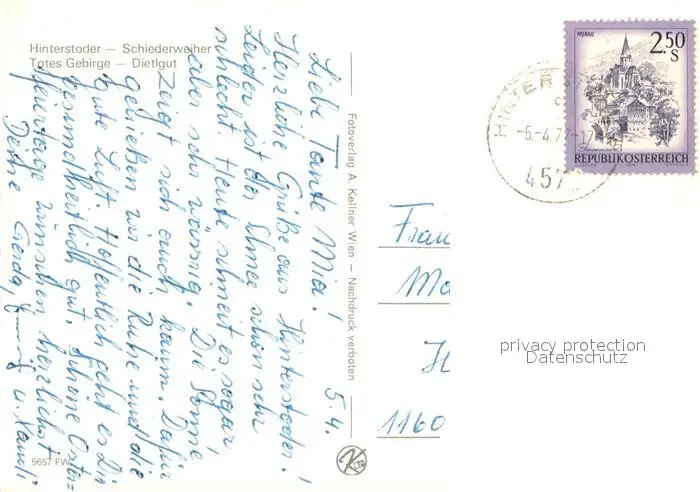 Hinterstoder — Schiederweiher
Totes Gebirge — Dietlgut
5.4.
Liebe Tante Mia!
Herzliche Grüße aus Hinterstoder!
Leider ist der Schnee schon sehr
schlecht. Heute schneit es sogar,
aber sehr wässrig. Die Sonne
zeigt sich auch kaum. Dafür
genießen wir die Ruhe und die
gute Luft. Hoffentlich geht es Dir
gesundheitlich gut. Schöne Oster=
feiertage wünschen herzlichst
Deine Gerda, u.
5657 FW
Fotoverlag A. Kellner Wien — Nachdruck verboten
MURAU
2.50
S
REPUBLIK ÖSTERREICH
HINTERST
-5.-4.7
457
Frau
Ma
H
1160
privacy protection
Datenschutz